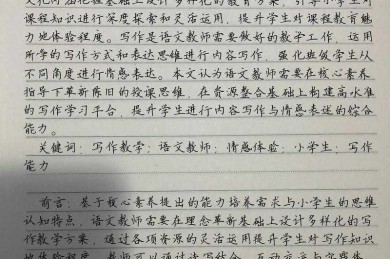 课程知识进行深度探索和灵活运用,提升学生对课程教育魅
力地体验程度。写作是语文教师需要做好的教学工作,运用
所学的写作方式和表达思维进行内容写作,强化班级学生从
不同角度进行情感表达。本文认为语文教师需要在核心素养
指导下革新陈旧的授课思维,在资源整合基础上构建高水准
的写作学习平台,提升学生进行内容写作与情感表达的综合
能力。
关键词:写作教学;语文教师;情感体验;小学生;写作
能力
前言:基于核心素养提出的能力培养需求与小学生的思维
认知特点,语文教师需要在理念革新基础上设计多样化的写
作教学方案,通过各项资源的灵活运用提升学生对写作知识